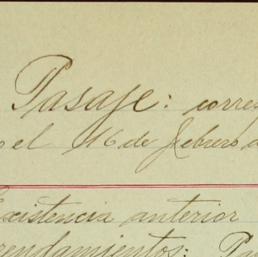 Pasaje: corres
el 16 de febrero d
Existencia anterior
rendamientos: Pa